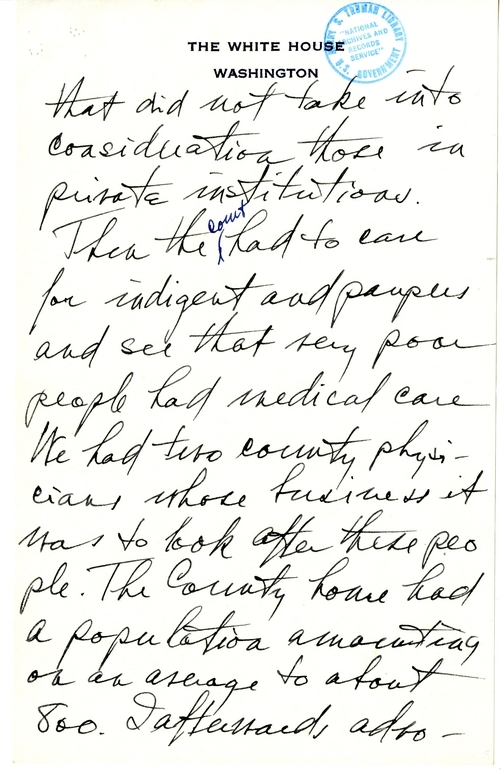 THE WHITE HOUSE
WASHINGTON
HARRY S. TRUMAN LIBRARY
"NATIONAL
ARCHIVES AND
RECORDS
SERVICE"
U.S. GOVERNMENT
that did not take into
consideration those in
private institutions.
Then the court had to care
for indigent and paupers
and see that very poor
people had medical care
We had two county physi-
cians whose business it
was to look after these peo
ple. The County home had
a population amounting
on an average to about
800. I afterwards advo-